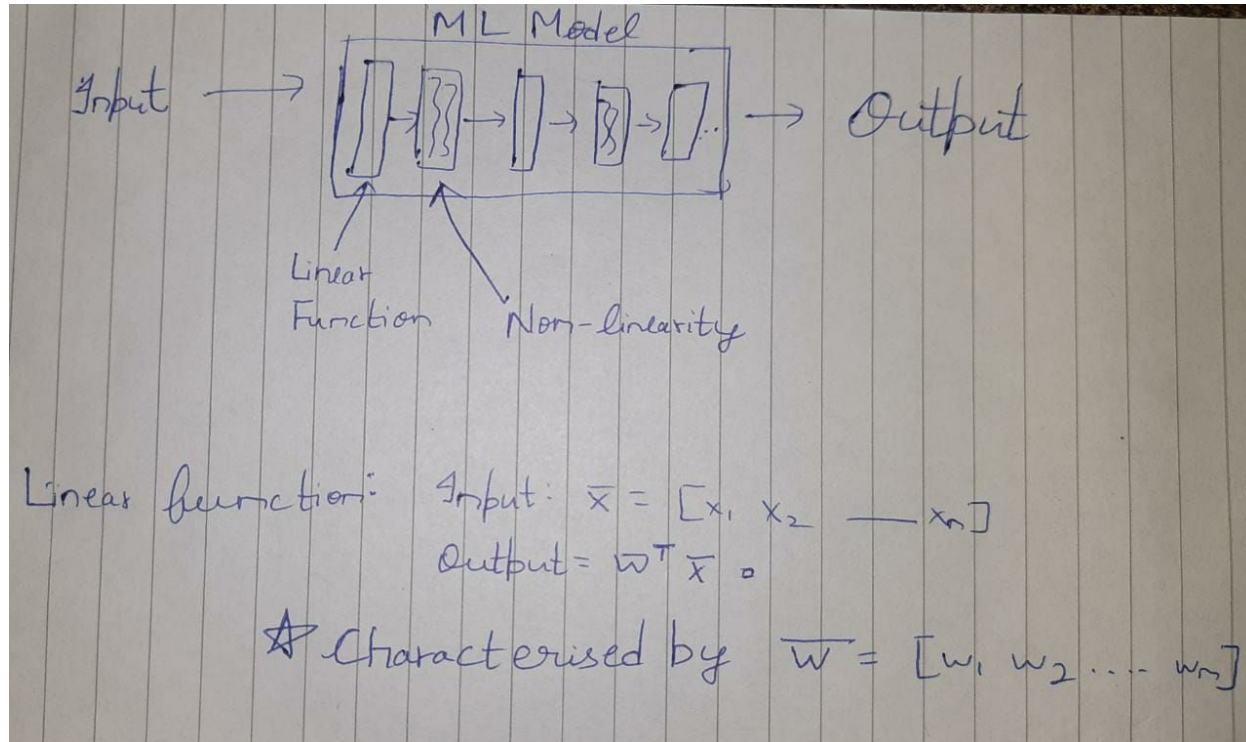 ML Model
Input → → → → → .. → Output
Linear
Function
Non-linearity
Linear function: Input: x̅ = [x₁ x₂ — xₙ]
Output = w̅ᵀ x̅ .
☆ Characterised by w̅ = [w₁ w₂ .... wₙ]